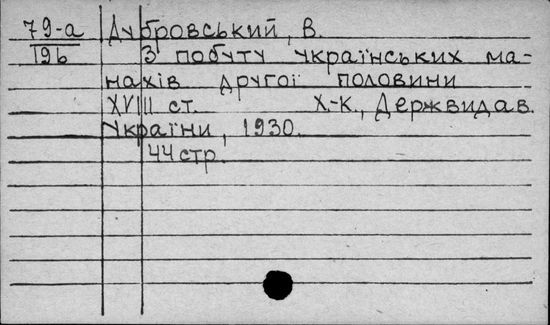 79-а Дубровський, В.
196 З побуту українських ма-
нахів другої половини
XVIII ст. Х.-К., Держвидав.
України, 1930.
44 стр.